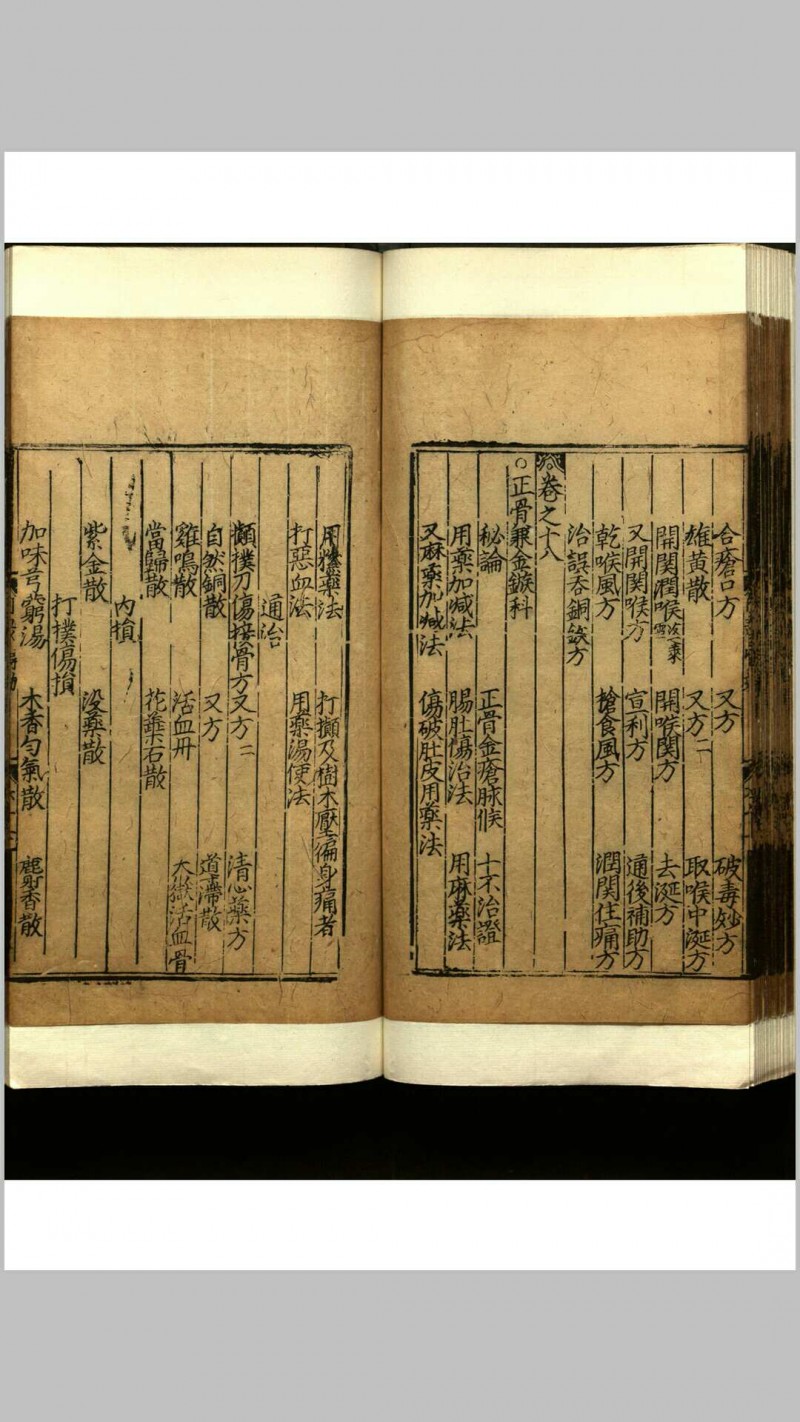 合瘡口方 又方 破毒妙方
雄黃散 又方二 取喉中涎方
開関潤喉 開喉関方 去涎方
又開関喉方 宣利方 通後補助方
乾喉風方 搶食風方 潤関住痛方
治誤吞銅錢方
卷之十八
○正骨兼金鏃科
秘論 正骨金瘡脉候 十不治證
用藥加减法 腸肚傷治法 用麻藥法
又麻藥加减法 傷破肚皮用藥法
用藥法 打攧及樹木壓徧身痛者
打惡血法 用藥湯使法
通治
攧撲刀傷接骨方 又方二 清心藥方
自然銅散 又方 導滯散
雞鳴散 活血丹 大嶽活血骨
當歸散 花蘂石散
內損
紫金散 没藥散
打撲傷損
加味芎藭湯 木香匀氣散 麝香散